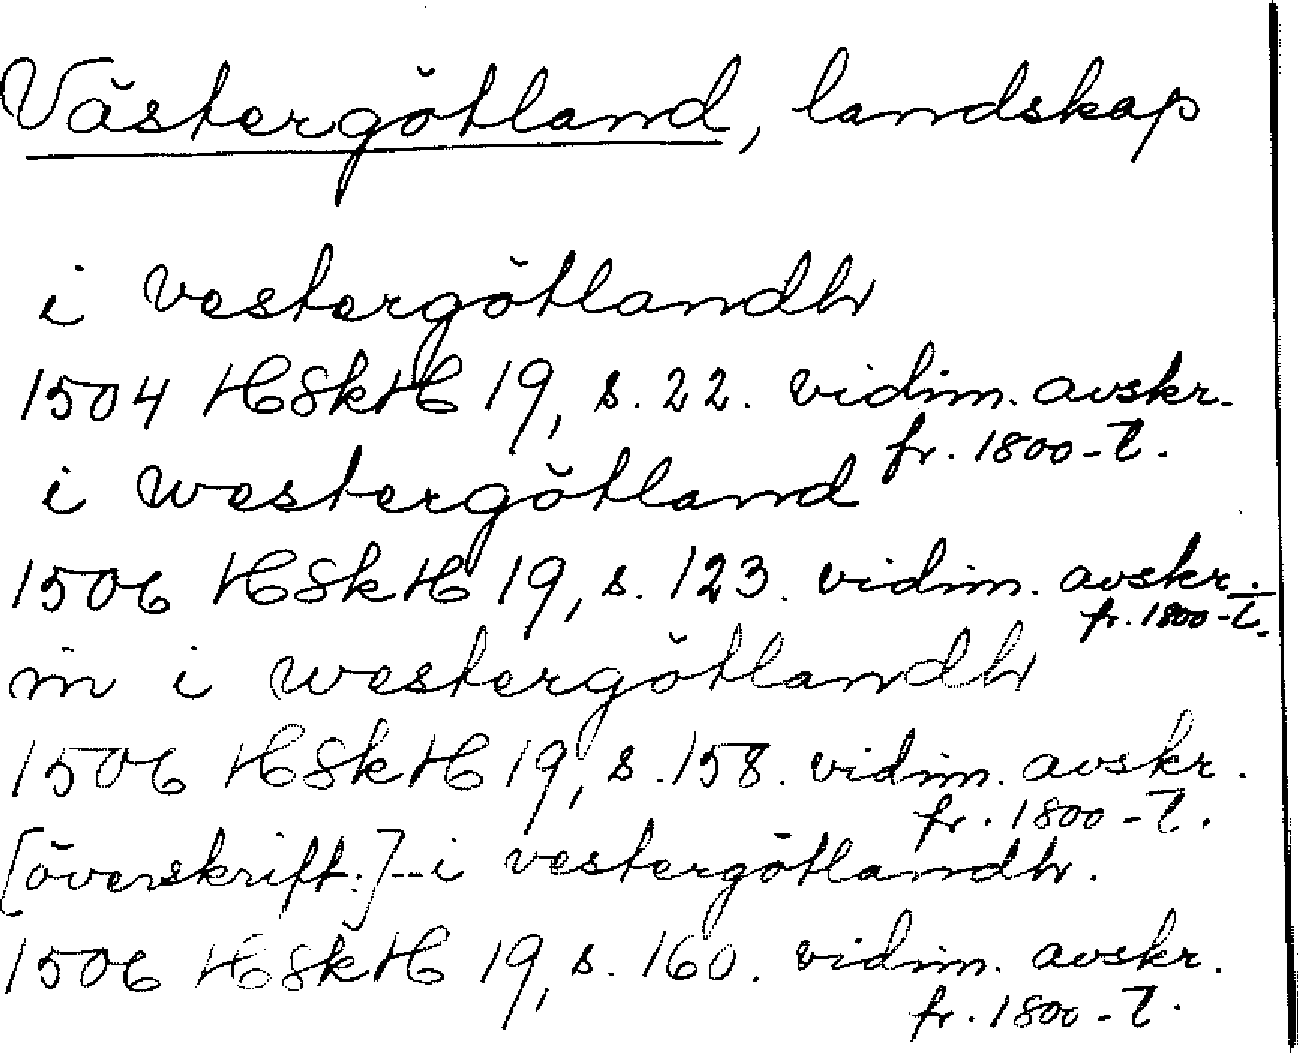 Västergötland, landskap
i vestergötlandh
1504 HSkH 19, s. 22. vidim. avskr.
fr. 1800-t.
i westergötland
1506 HSkH 19, s. 123. vidim. avskr.
fr. 1800-t.
in i westergötlandh
1506 HSkH 19, s. 158. vidim. avskr.
fr. 1800-t.
[överskrift:]--i vestergötlandh.
1506 HSkH 19, s. 160. vidim. avskr.
fr. 1800-t.